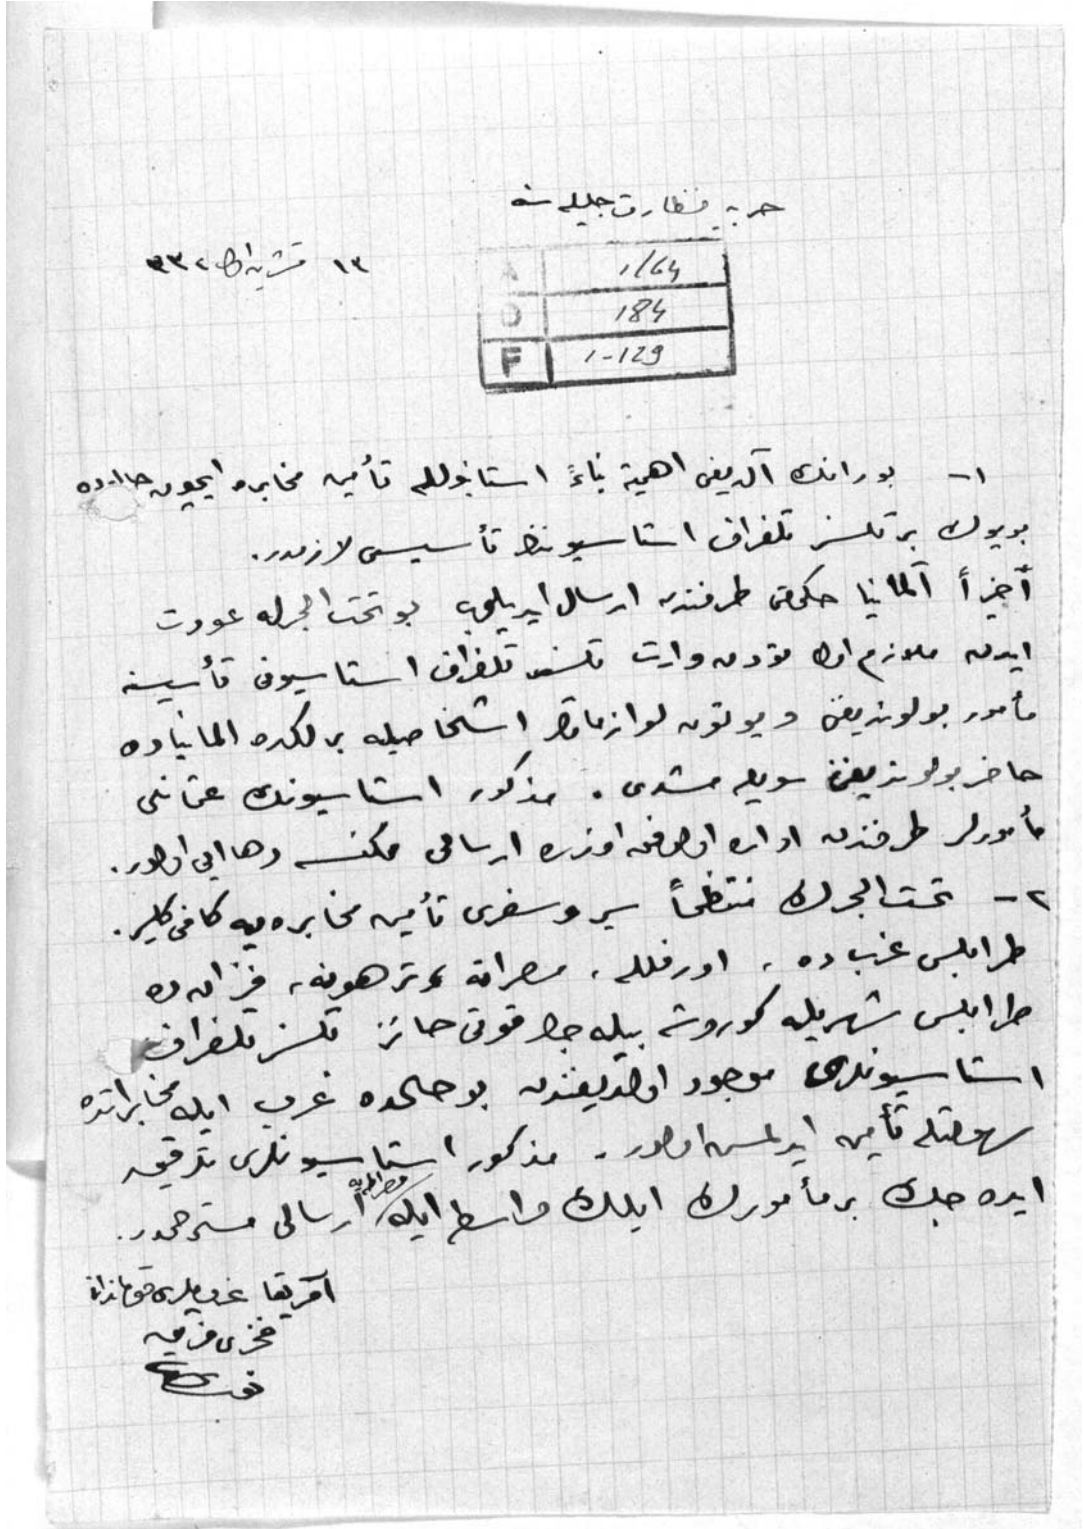 حربیه نظارت جلیله‌سنه
١٣ تشرین اول ٣٣٢
A 1/64
D 184
F 1-129
١- بورانك آلدیغی اهمیته بناءً استانبولله تأمین مخابره ایچون
بویوك بر تلسز تلغراف استاسیوننك تأسیسی لازمدر.
أخیراً آلمانیا حكومتی طرفندن ارسال ایدیلن بو تحت البحرله عودت
ایدن ملازم اول تلسز تلغراف استاسیونی تأسیسنه
مأمور بولوندیغنی و بوتون لوازماتی و اشخاصیله برلكده المانیاده
حاضر بولوندیغنی سویله مشدی. مذكور استاسیونك عثمانلی
مأمورلر طرفندن اداره اولونمق اوزره ارسالی ممكنسه دها ایی اولور.
٢- تحت البحرك منتظماً سیر و سفری تأمین مخابره‌یه كافی كلیر.
طرابلس غربده، اورفلله، مصراته و ترهونه، فزانده
طرابلس شهریله كوروشه بیله‌جك قوتی حائز تلسز تلغراف
استاسیونلری موجود اولدیغندن بو حالده غرب ایله مخابراتده
سهولتله تأمین ایدلمش اولور. مذكور استاسیونلری تدقیق
ایده‌جك بر مأمورك ایلك واسطه ایله ارسالی مسترحمدر.
آفریقا غروپلری قوماندانی
فخری فریق
نوری